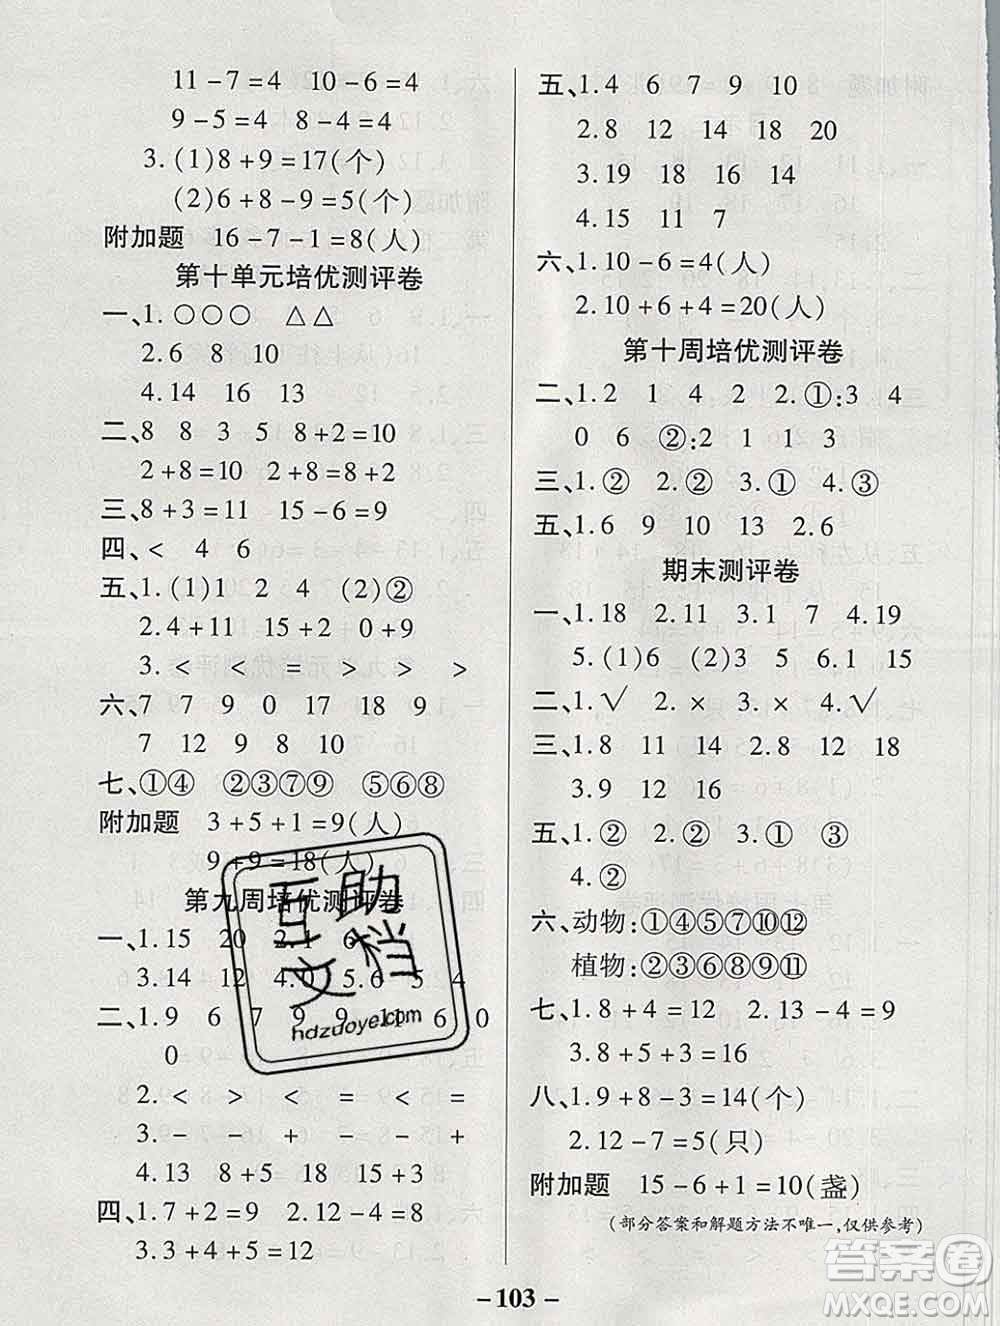 11－7＝4　10－6＝4
9－5＝4　8－4＝4
3.(1)8＋9＝17(个)
(2)6＋8－9＝5(个)
附加题　16－7－1＝8(人)
第十单元培优测评卷
一、1.○○○　△△
2.6　8　10
4.14　16　19
二、8　8　3　5　8＋2＝10
2＋8＝10　8＝10－2
三、8＋3＝11　15－6＝9
四、<　4　6
五、1.(1)1　2　4　(2)②
2.4＋11　15＋2　0＋9
3.<　<　＝　>　>　>
六、7　7　9　0　17　18　9
7　12　9　8　10
七、①④　②③⑦⑨　⑤⑥⑧
附加题　3＋5＋1＝9(人)
9＋9＝18(人)
第九周培优测评卷
一、1.15　20　2.1　6
3.14　12　4.0　5　5　4
二、1.9　6　7　9　9　1　6　0
0
2.<　>　<　＝　<　＝
3.－　－　＋　－　－　＋
4.13　8＋5　18　15＋3
四、1.7＋2＝9　2.12－4＝8
3.3＋4＋5＝12
五、1.4　6　7　9　10
2.8　12　14　18　20
3.19　18　16　14
4.15　11　7
六、1.10－6＝4(人)
2.10＋6＋4＝20(人)
第十周培优测评卷
二、1.2　1　4　2　2.①:3　4
0　6　②:2　1　1　3
三、1.②　2.②　3.①　4.③
五、1.6　9　10　13　2.6
期末测评卷
一、1.18　2.11　3.1　7　4.19
5.(1)6　(2)3　5　6.1　15
二、1.√　2.×　3.×　4.√
三、1.8　11　14　2.8　12　18
3.9　12　16
五、1.②　2.②　3.①　③
4.②
六、动物:①④⑤⑦⑩⑫
植物:②③⑥⑧⑨⑪
七、1.8＋4＝12　2.13－4＝9
3.8＋5＋3＝16
八、1.9＋8－3＝14(个)
2.12－7＝5(只)
附加题　15－6＋1＝10(盏)
(部分答案和解题方法不唯一,仅供参考)
－103－
互助
文档
hdzuoye.com
答案圈
MXQE.COM